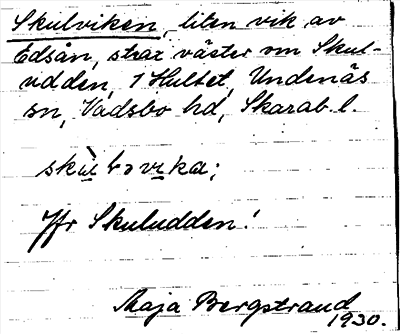 Skulviken, liten vik av
Edsån, strax väster om Skul-
udden, 1 Hultet, Undenäs
sn, Vadsbo hd, Skarab. l.
Jfr Skuludden!
Maja Bergstrand
1930.